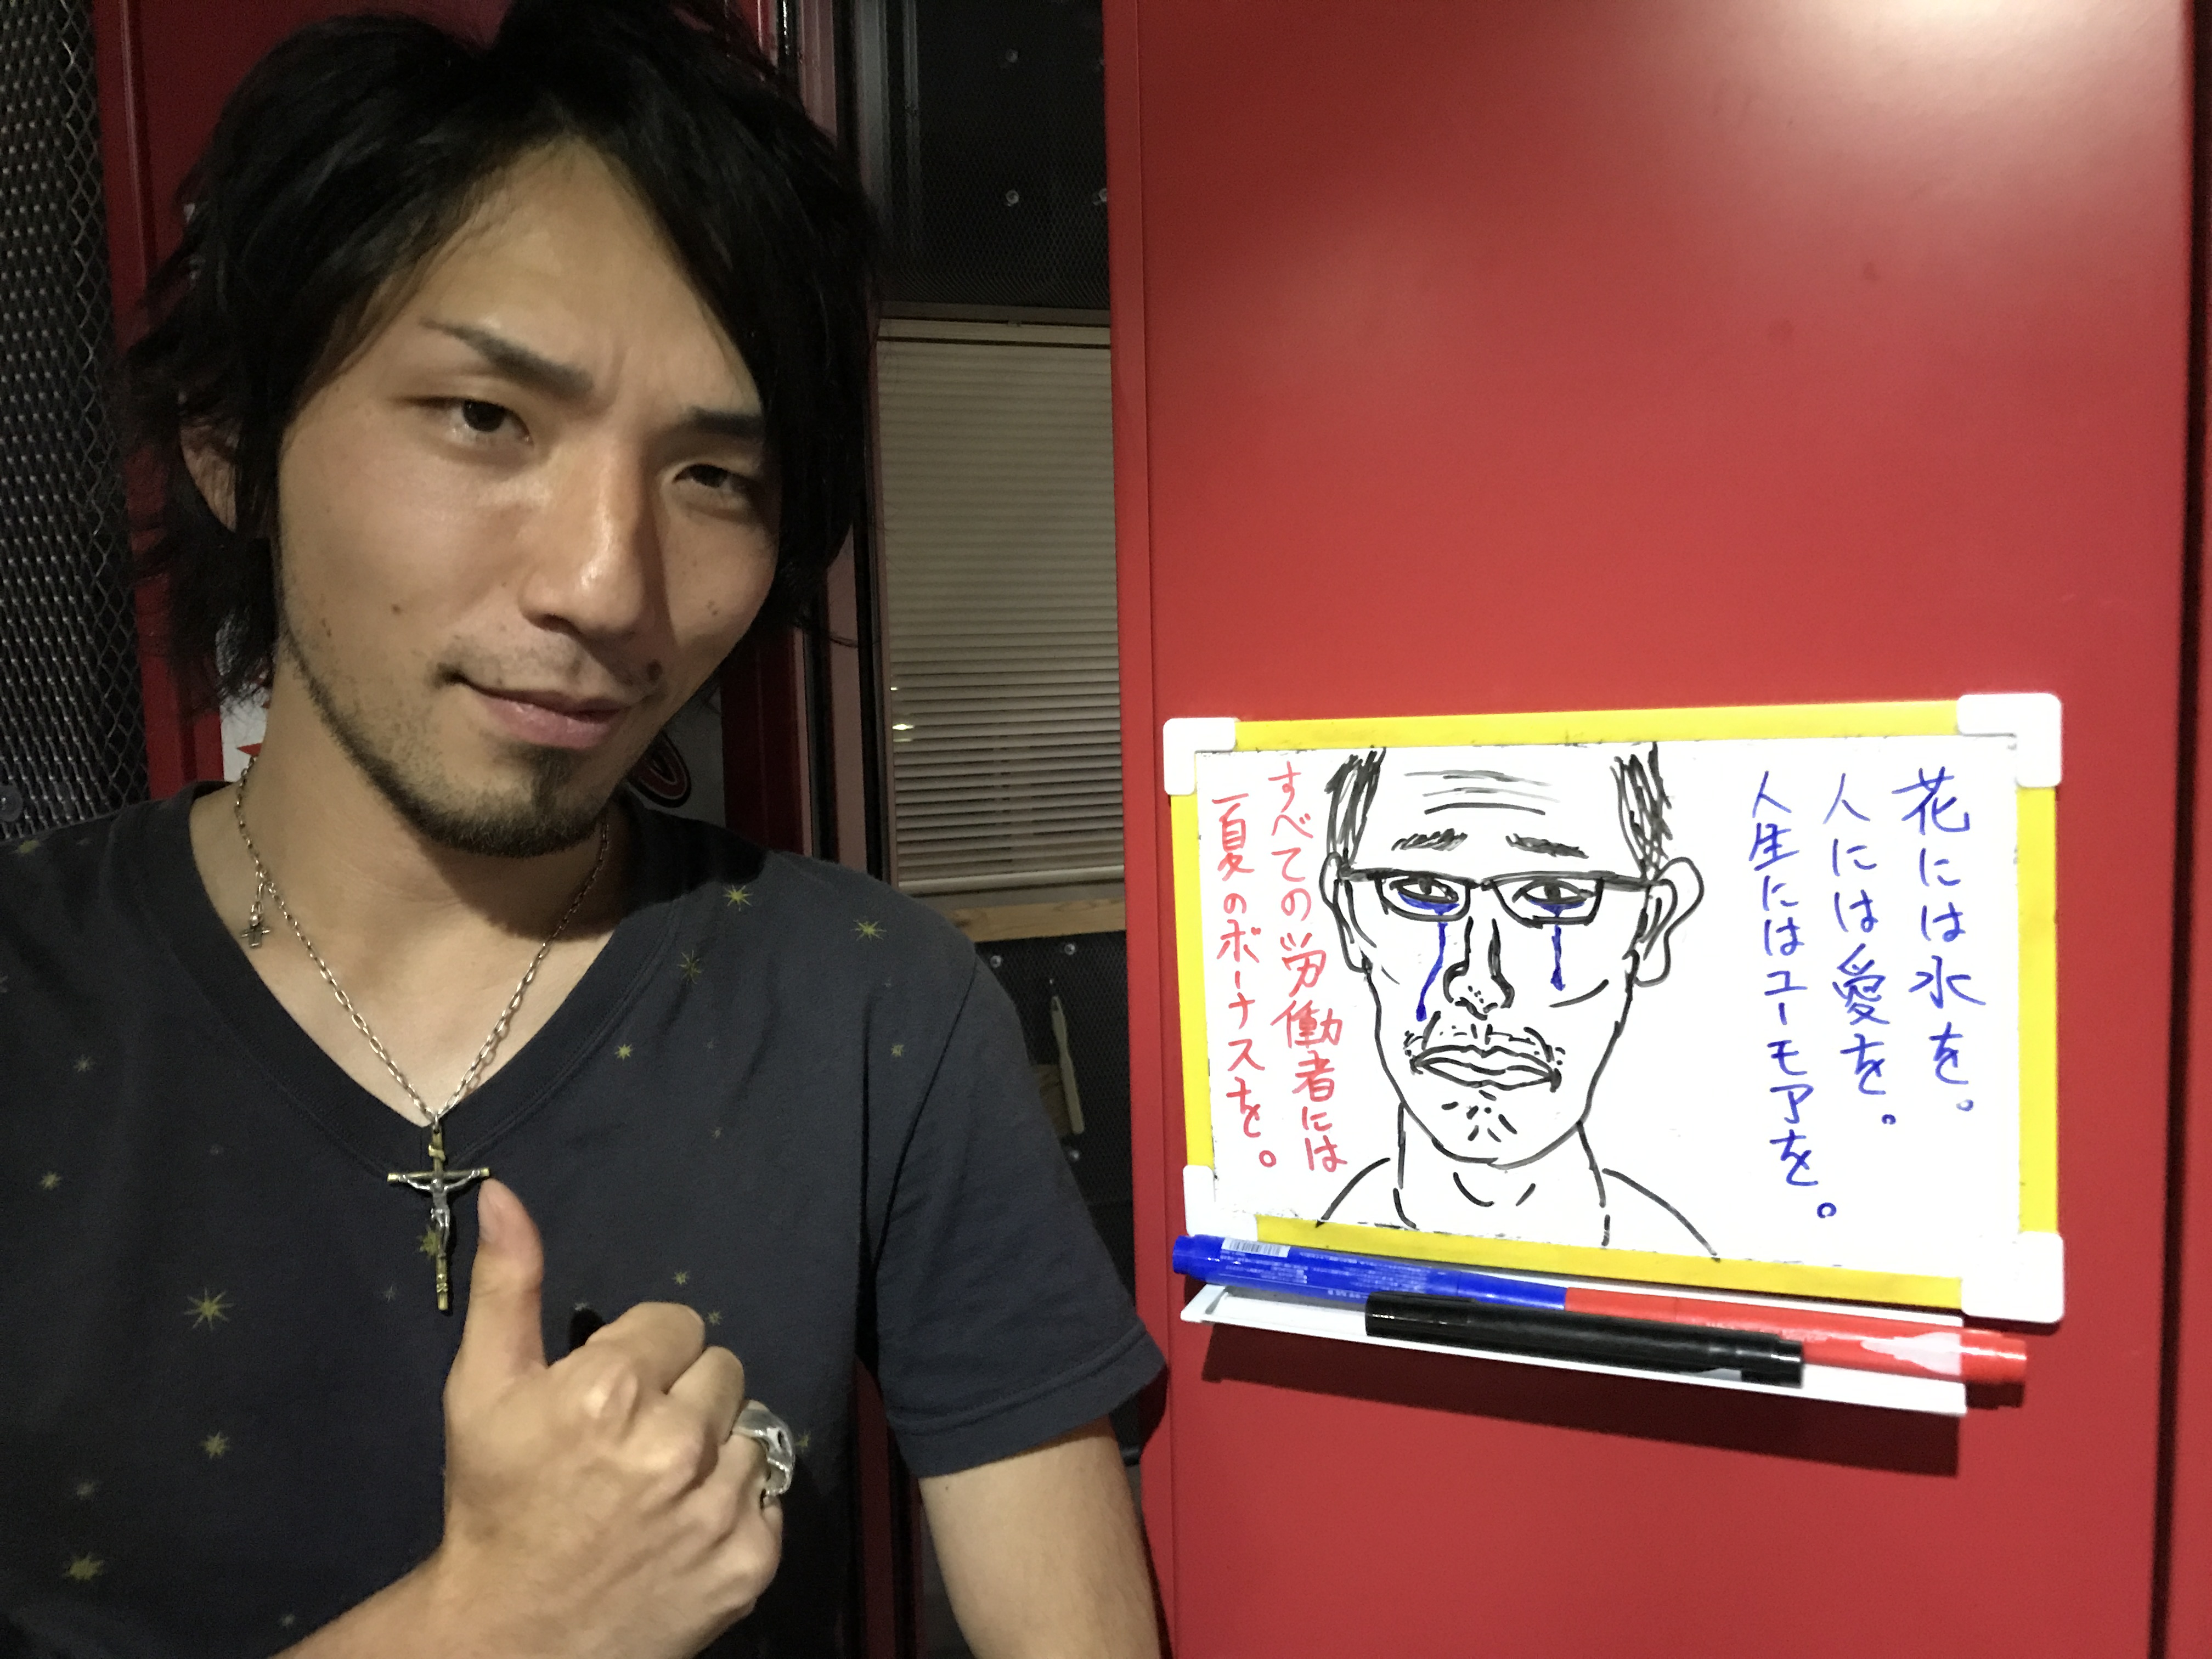 花には水を。
人には愛を。
人生にはユーモアを。
すべての労働者には
夏のボーナスを。